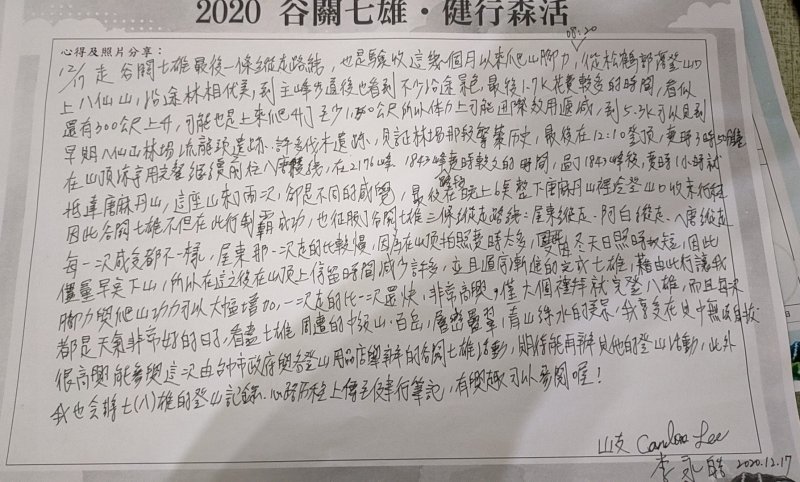 2020 谷關七雄·健行森活
心得及照片分享：
08:20
12/17 走 谷關七雄最後一條縱走路線，也是驗收這幾個月以來爬山腳力，從松鶴部落登山口
上八仙山，沿途林相優美，到主峰步道後也看到不少沿途景色，最後1.7K花費較多的時間，看似
還有300公尺上升，可能也是上來爬升了至少1,500公尺所以體力上可能邊際效用遞減，到5.3K可以見到
早期八仙山林場流籠頭遺跡、許多伐木遺跡，見証林場那段繁華历史，最後在12:10登頂，費時3時50分鐘
在山頂休享用完餐 繼續前往八唐稜線，在2176峰、1843峰費時較久的時間，過了1843峰後，費時1小時就
抵達唐麻丹山，這座山來了兩次，卻是不同的感覺，最後在晚上6點整下唐麻丹山裡冷登山口收來行程
因此谷關七雄不但在此行制霸成功，也征服了谷關七雄三條縱走路線：屋東縱走、阿白縱走、八唐縱走
每一次感受都不一樣，屋東那一次走的比較慢，因為在山頂拍照費時太多，冬天日照時較短，因此
儘量早点下山，所以在這之後在山頂上停留時間減少許多，並且循序漸進的完成七雄，藉由此行讓我
腳力與爬山功力可以大幅增加，一次走的比一次還快，非常高興，僅大個禮拜就完登八雄，而且每次
都是天氣非常好的日子，看盡七雄周遭的中級山、百岳，層巒疊翠，青山綠水的美景，我享受在其中無法自拔
很高興能參與這次由台中市政府與各登山用品店舉辦的谷關七雄活動，期待能再辦其他的登山活動，此外
我也会將七(八)雄的登山記錄、心路历程上傳至健行筆記，有興趣可以參閱喔！
山友 Lee
李永皓 2020.12.17